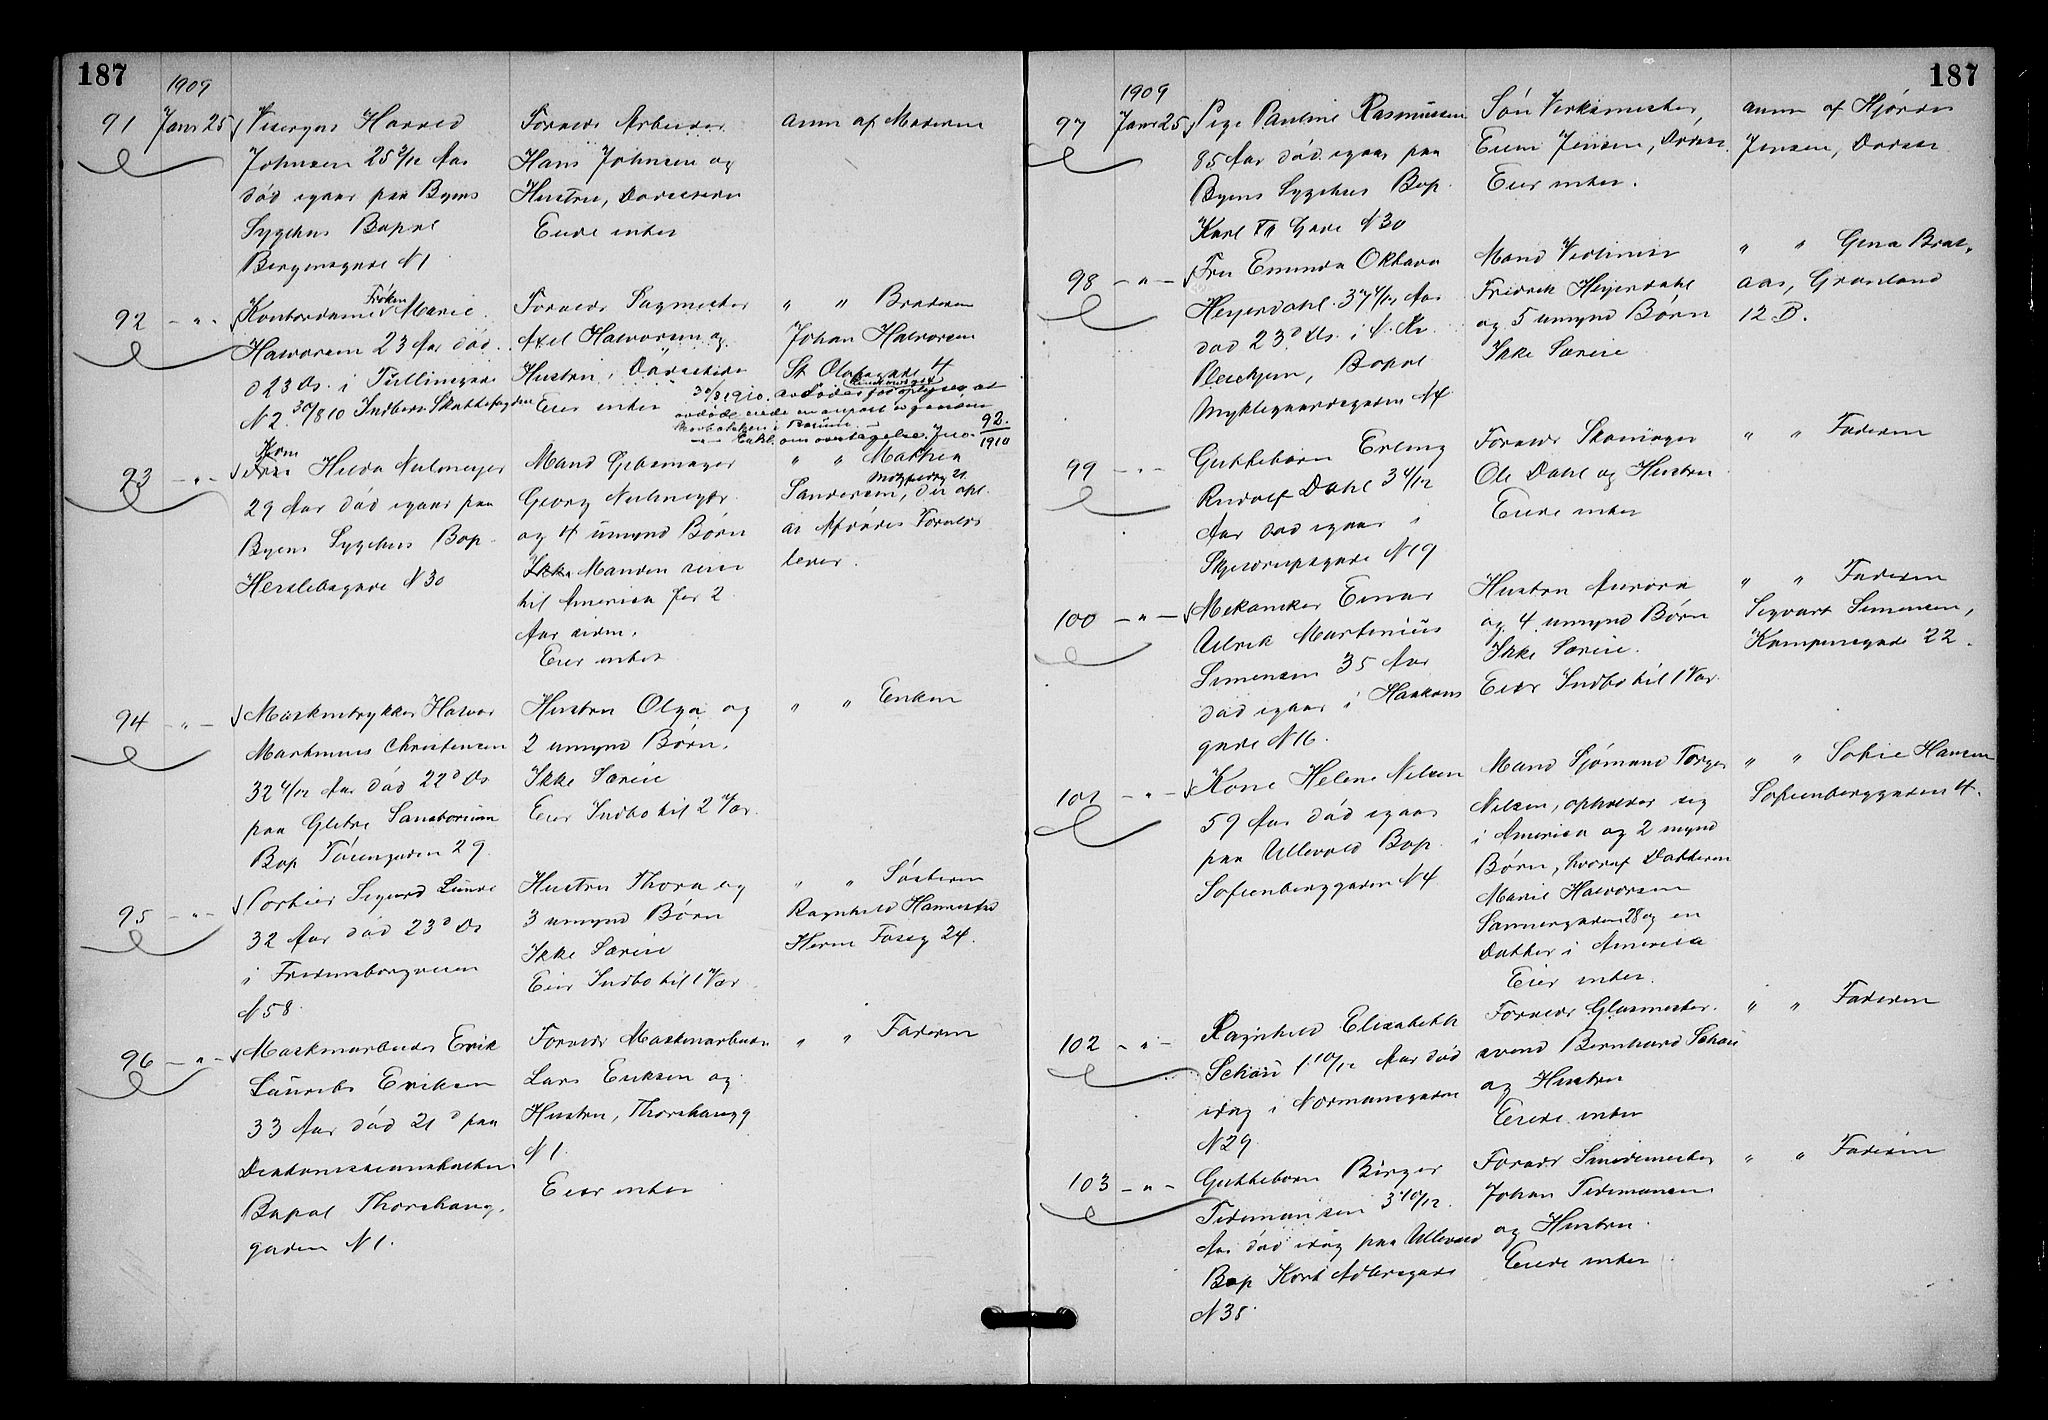 187
1909
91 Janr 25
Visergut Harald
Johnsen 25 2/12 Aar
død igaar paa Byens
Sygehus Bopæl
Bergensgade N 1
Foræld: Arbeider
Hans Johnsen og
Hustru, Darersteder
Eiede intet
anm af Moderen
92 - " -
Kontordame Frøken Marie
Halvorsen 23 Aar død
d 23 ds. i Tullinsgade
N 2. 30/8 10 Indber. Skattefogden
Foræld: Sagmester
Axel Halvorsen og
Hustru, Darersteder
Eier intet
" " Broderen
Johan Halvorsen
St. Olafsgade 4
30/8 1910. avdødes
92
1910
93 - " -
Kone Hilda Neumeyer
29 Aar død igaar paa
Byens Sygehus Bop.
Herslebsgade N 30
Mand Gibsmager
Georg Neumeyer
og 4 umynd Børn
Ikke Manden reiste
til America for 2
Aar siden.
Eier intet
" " Mathea
Sandersen, der opl.
at Afdødes Forældre
lever.
94 - " -
Maskintrykker Halvor
Martinius Christensen
32 4/12 Aar død 22d ds
paa Glitre Sanatorium
Bop Tøiengaden 29
Hustru Olga og
2 umynd Børn.
Ikke Særeie
Eier Indbo til 1 Vær.
" " Enken
95 - " -
Portier Sigurd Lunde
32 Aar død 23d ds
i Fredensborgveien
N 58.
Hustru Thora og
3 umynd Børn
Ikke Særeie
Eier Indbo til 1 Vær.
" " Søsteren
Ragnhild
Herm Fossg 24.
96 - " -
Maskinarbeider Erik
Laurits Eriksen
33 Aar død 21d paa
Diakonisseanstalten
Bopæl Thorshaug
gaden N 1.
Foræld: Maskinarbeider
Lars Eriksen og
Hustru, Thorshaugg
N 1.
Eier intet
" " Faderen
187
1909
97 Janr 25
Pige Pauline Rasmussen
85 Aar død igaar paa
Byens Sygehus Bop.
Karl XII Gade N 30
Søn Verksmester
Jensen,
Eier intet.
anm af Hjørdis
Jensen,
98 - " -
Fru Emunda Oktava
Heyerdahl. 37 4/12 Aar
død 23d ds. i
Pleiehjem, Bopæl
Myklegaardsgaden N 4
Mand Violinist
Fridrik Heyerdahl
og 5 umynd Børn
Ikke Særeie
" " Gina Braat
aas, Grønland
12 B.
99 - " -
Guttebarn Erling
Rudolf Dahl 3 4/12
Aar død igaar i
Skjeldrupsgade N 19
Foræld: Skomager
Ole Dahl og Hustru
Eiede intet
" " Faderen
100 - " -
Mekaniker Einar
Ulrik Martinius
Simensen 35 Aar
død igaar i Haakons
gade N 16.
Hustru Aurora
og 4 umynd Børn
Ikke Særeie.
Eier Indbo til 1 Vær.
" " Faderen
Sigvart Simensen,
Kampensgade 22.
101 - " -
Kone Helene Nilsen
59 Aar død igaar
paa Ullevold Bop.
Sofienberggaden N 4
Mand Sjømand Torger
Nilsen, opholder sig
i America og 2 mynd
Børn, hvoraf Datteren
Marie Halvorsen
Sannergaden 28 og en
Datter i America
Eier intet.
" " Sofie Hansen
Sofienberggaden 4.
102 - " -
Ragnhild Elisabeth
Schau 1 10/12 Aar død
idag i Normannsgaden
N 29
Foræld: Glasmester-
svend Bernhard Schau
og Hustru
Eiede intet
" " Faderen
103 - " -
Guttebarn Birger
Tidemansen 3 10/12
Aar død idag paa Ullevold
Bop Kort Adlersgade
N 35
Foræld Smidemester
Johan Tidemansen
og Hustru.
Eiede intet
" " Faderen